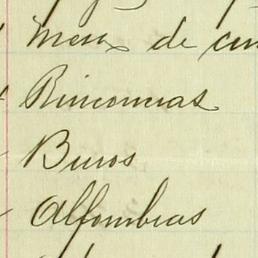 Mesa de
Rinconeras
Buros
Alfombras